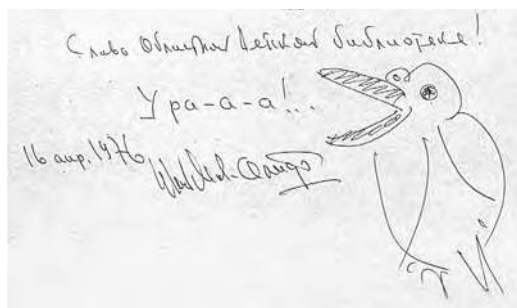 Слава Областной Детской библиотеке!
Ура-а-а!..
16 апр. 1976